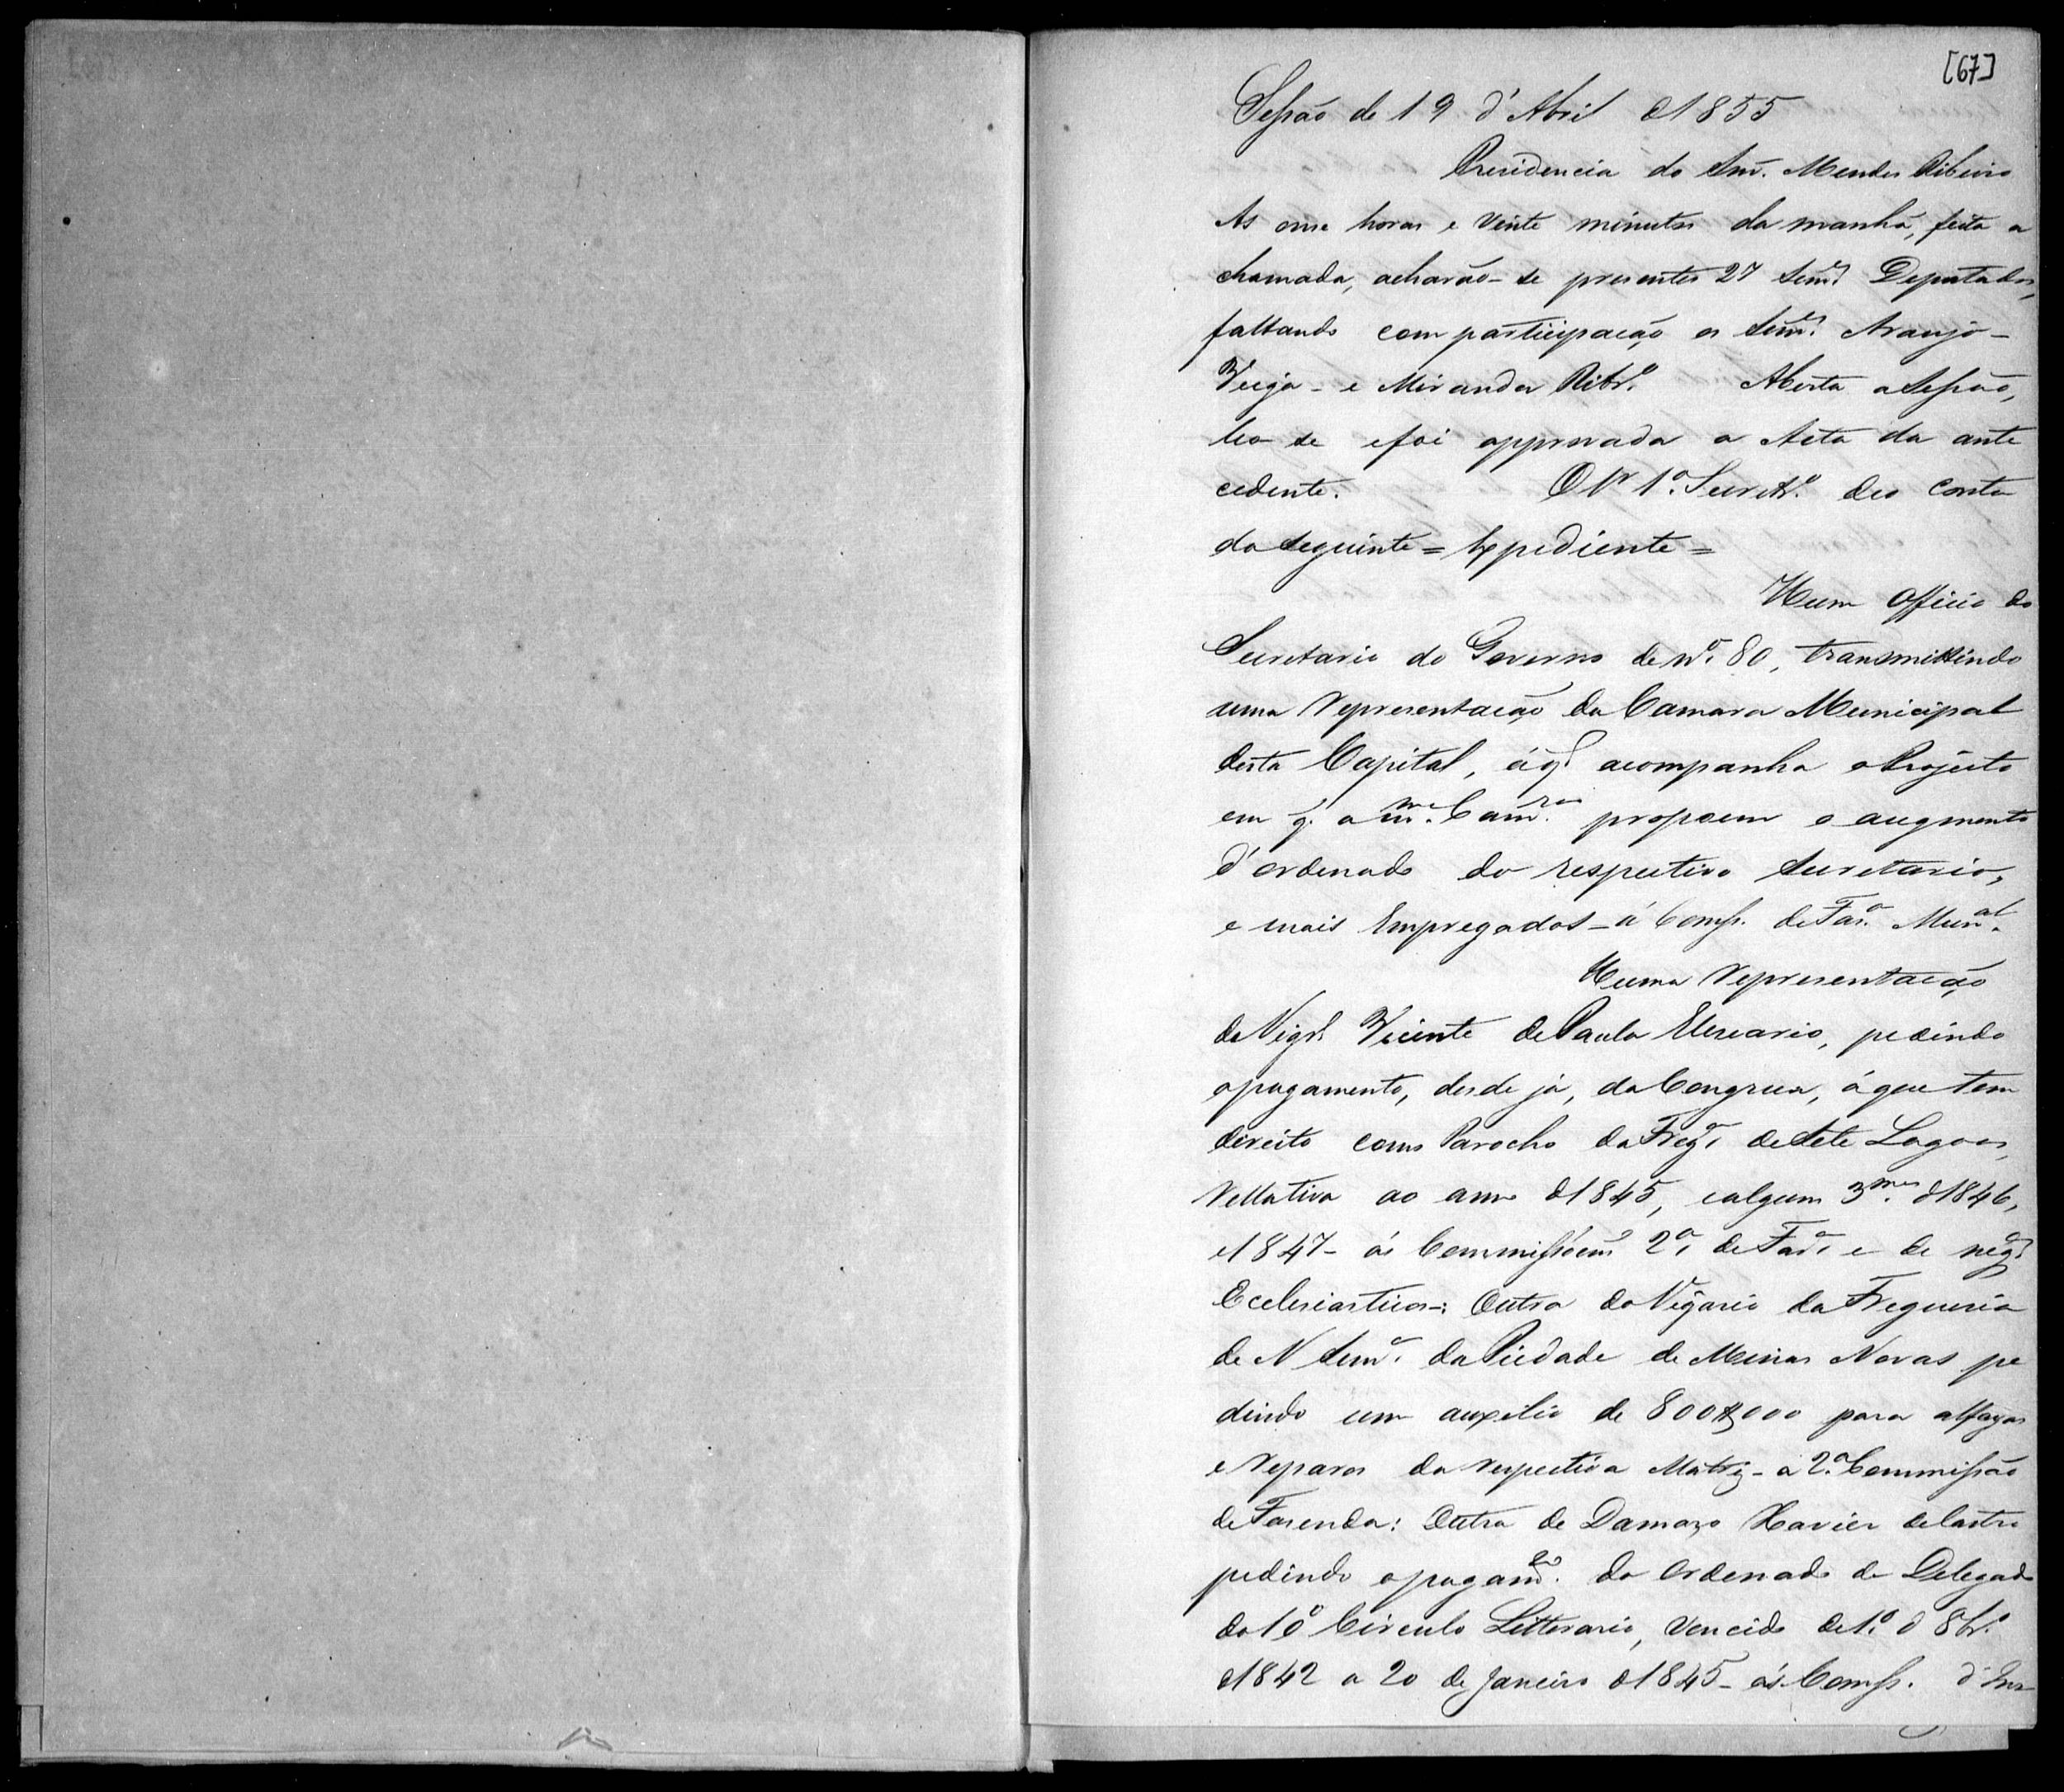 [67]
Sessão de 19 d'Abril d1855
Presidencia do Snr. Mendes Ribeiro
As onse horas e vinte minutos da manhã, feita a
chamada, acharão-se presentes 27 Senr.es Deputados,
faltando com participação os Senr.es Araujo -
Veiga - e Miranda Ribr.o Aberta a Sessão,
leo-se e foi approvada a Acta da ante
cedente. O Sr 1.o Secretr.o deo conta
do seguinte = Expediente =
Hum Officio do
Secretario do Governo de N.o 80, transmittindo
uma representação da Camara Municipal
desta Capital, á q.l acompanha o Projecto
em q. a m.ma Cam.ra propoem o augmento
d'ordenado do respectivo Secretario,
e mais Empregados - á Comss. de Fas.a Mun.al
Huma representação
do Vigr.o Vicente de Paula Elseario, pedindo
o pagamento, desde já, da Congrua, á que tem
direito como Parocho da Freg.a de Sete Lagoas,
rellativa ao anno d1845, e algum 3.mes d1846,
e1847 - ás Commissoens 2.a de Fasd.a e de neg.os
Ecclesiasticos -: Outra do Vigario da Freguesia
de N Senr.a da Piedade de Minas Novas pe
dindo um auxilio de 800$000 para alfayas
e reparos da respectiva Matriz - á 2.a Commissão
de Fasenda: Outra de Damazo Xavier de Castro
pedindo o pagam.to do Ordenado de Delegado
do 10.o Circulo Litterario, vencido de 1.o d 8br.o
d1842 a 20 de Janeiro d1845 - ás Comss. d'Ins